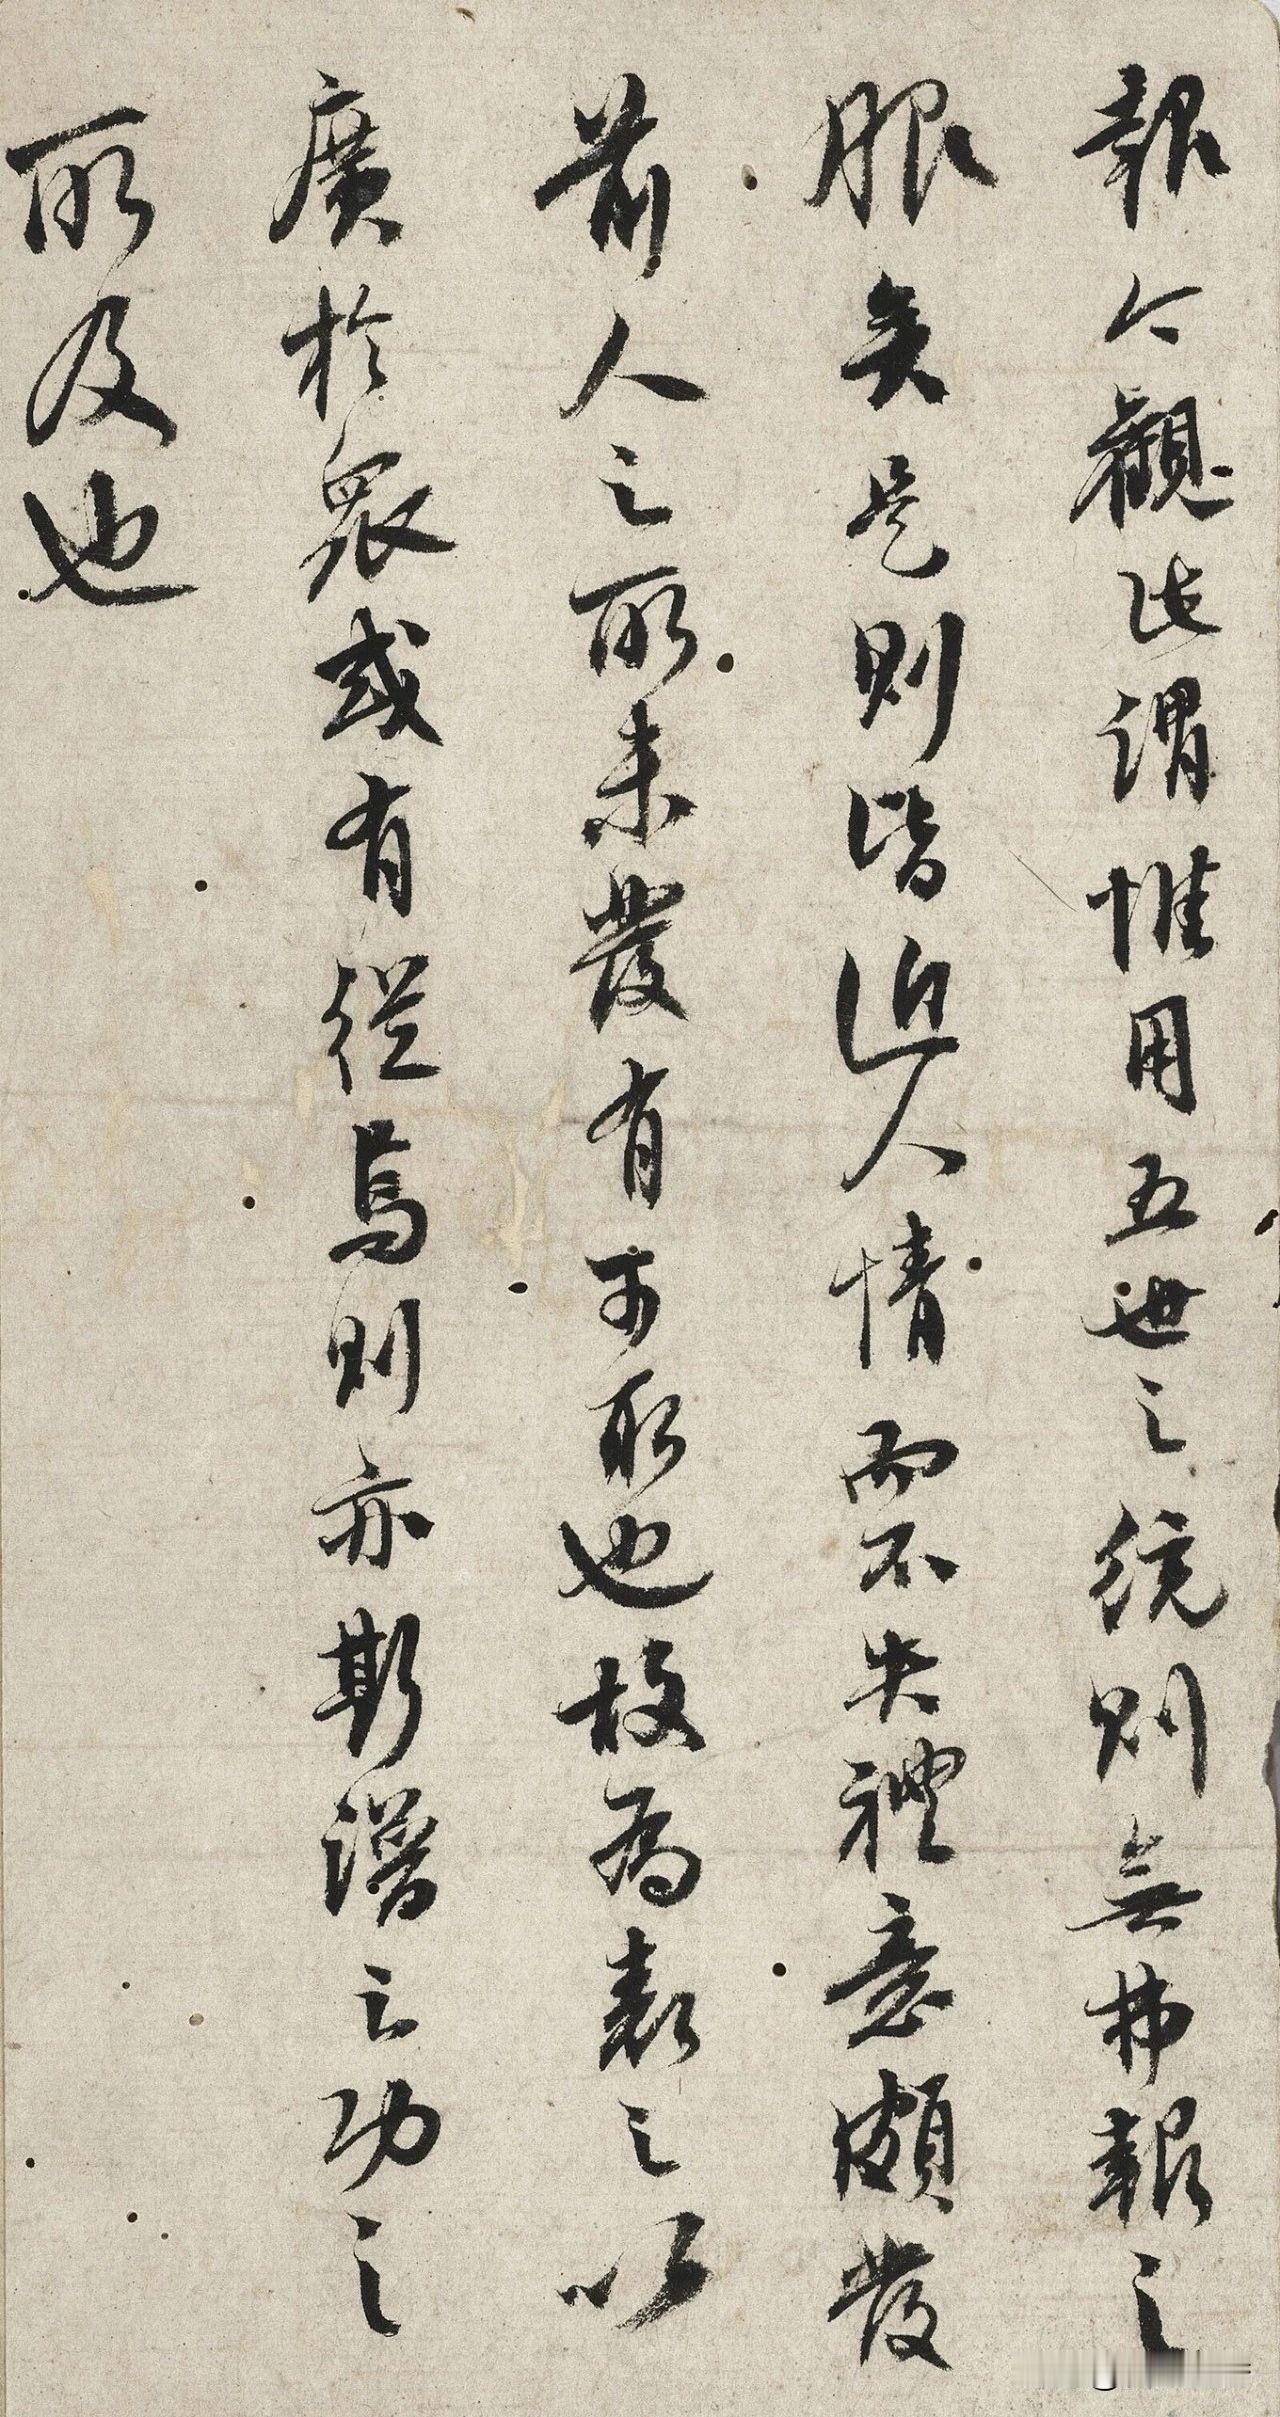 報今觀此謂惟用五世之統則無弗報之
服矣是則皆近人情而不失禮意頗發
前人之所未發有可取也故為表之以
廣於眾或有從焉則亦斯譜之功之
所及也